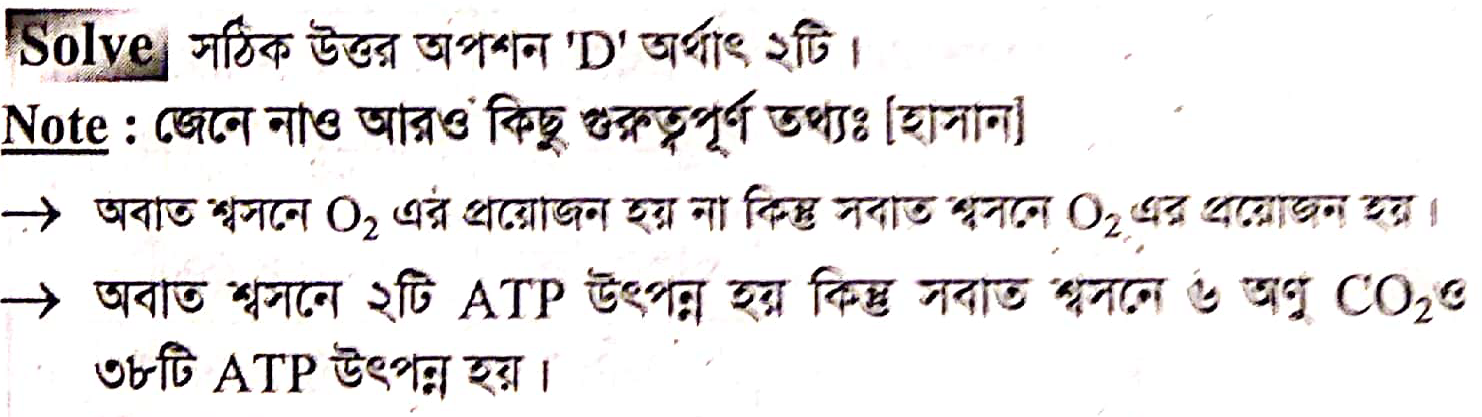 Solve সঠিক উত্তর অপশন 'D' অর্থাৎ ২টি।
Note : জেনে নাও আরও কিছু গুরুত্বপূর্ণ তথ্যঃ [হাসান]
→ অবাত শ্বসনে O₂ এর প্রয়োজন হয় না কিন্তু সবাত শ্বসনে O₂ এর প্রয়োজন হয়।
→ অবাত শ্বসনে ২টি ATP উৎপন্ন হয় কিন্তু সবাত শ্বসনে ৬ অণু CO₂ ও
৩৮টি ATP উৎপন্ন হয়।